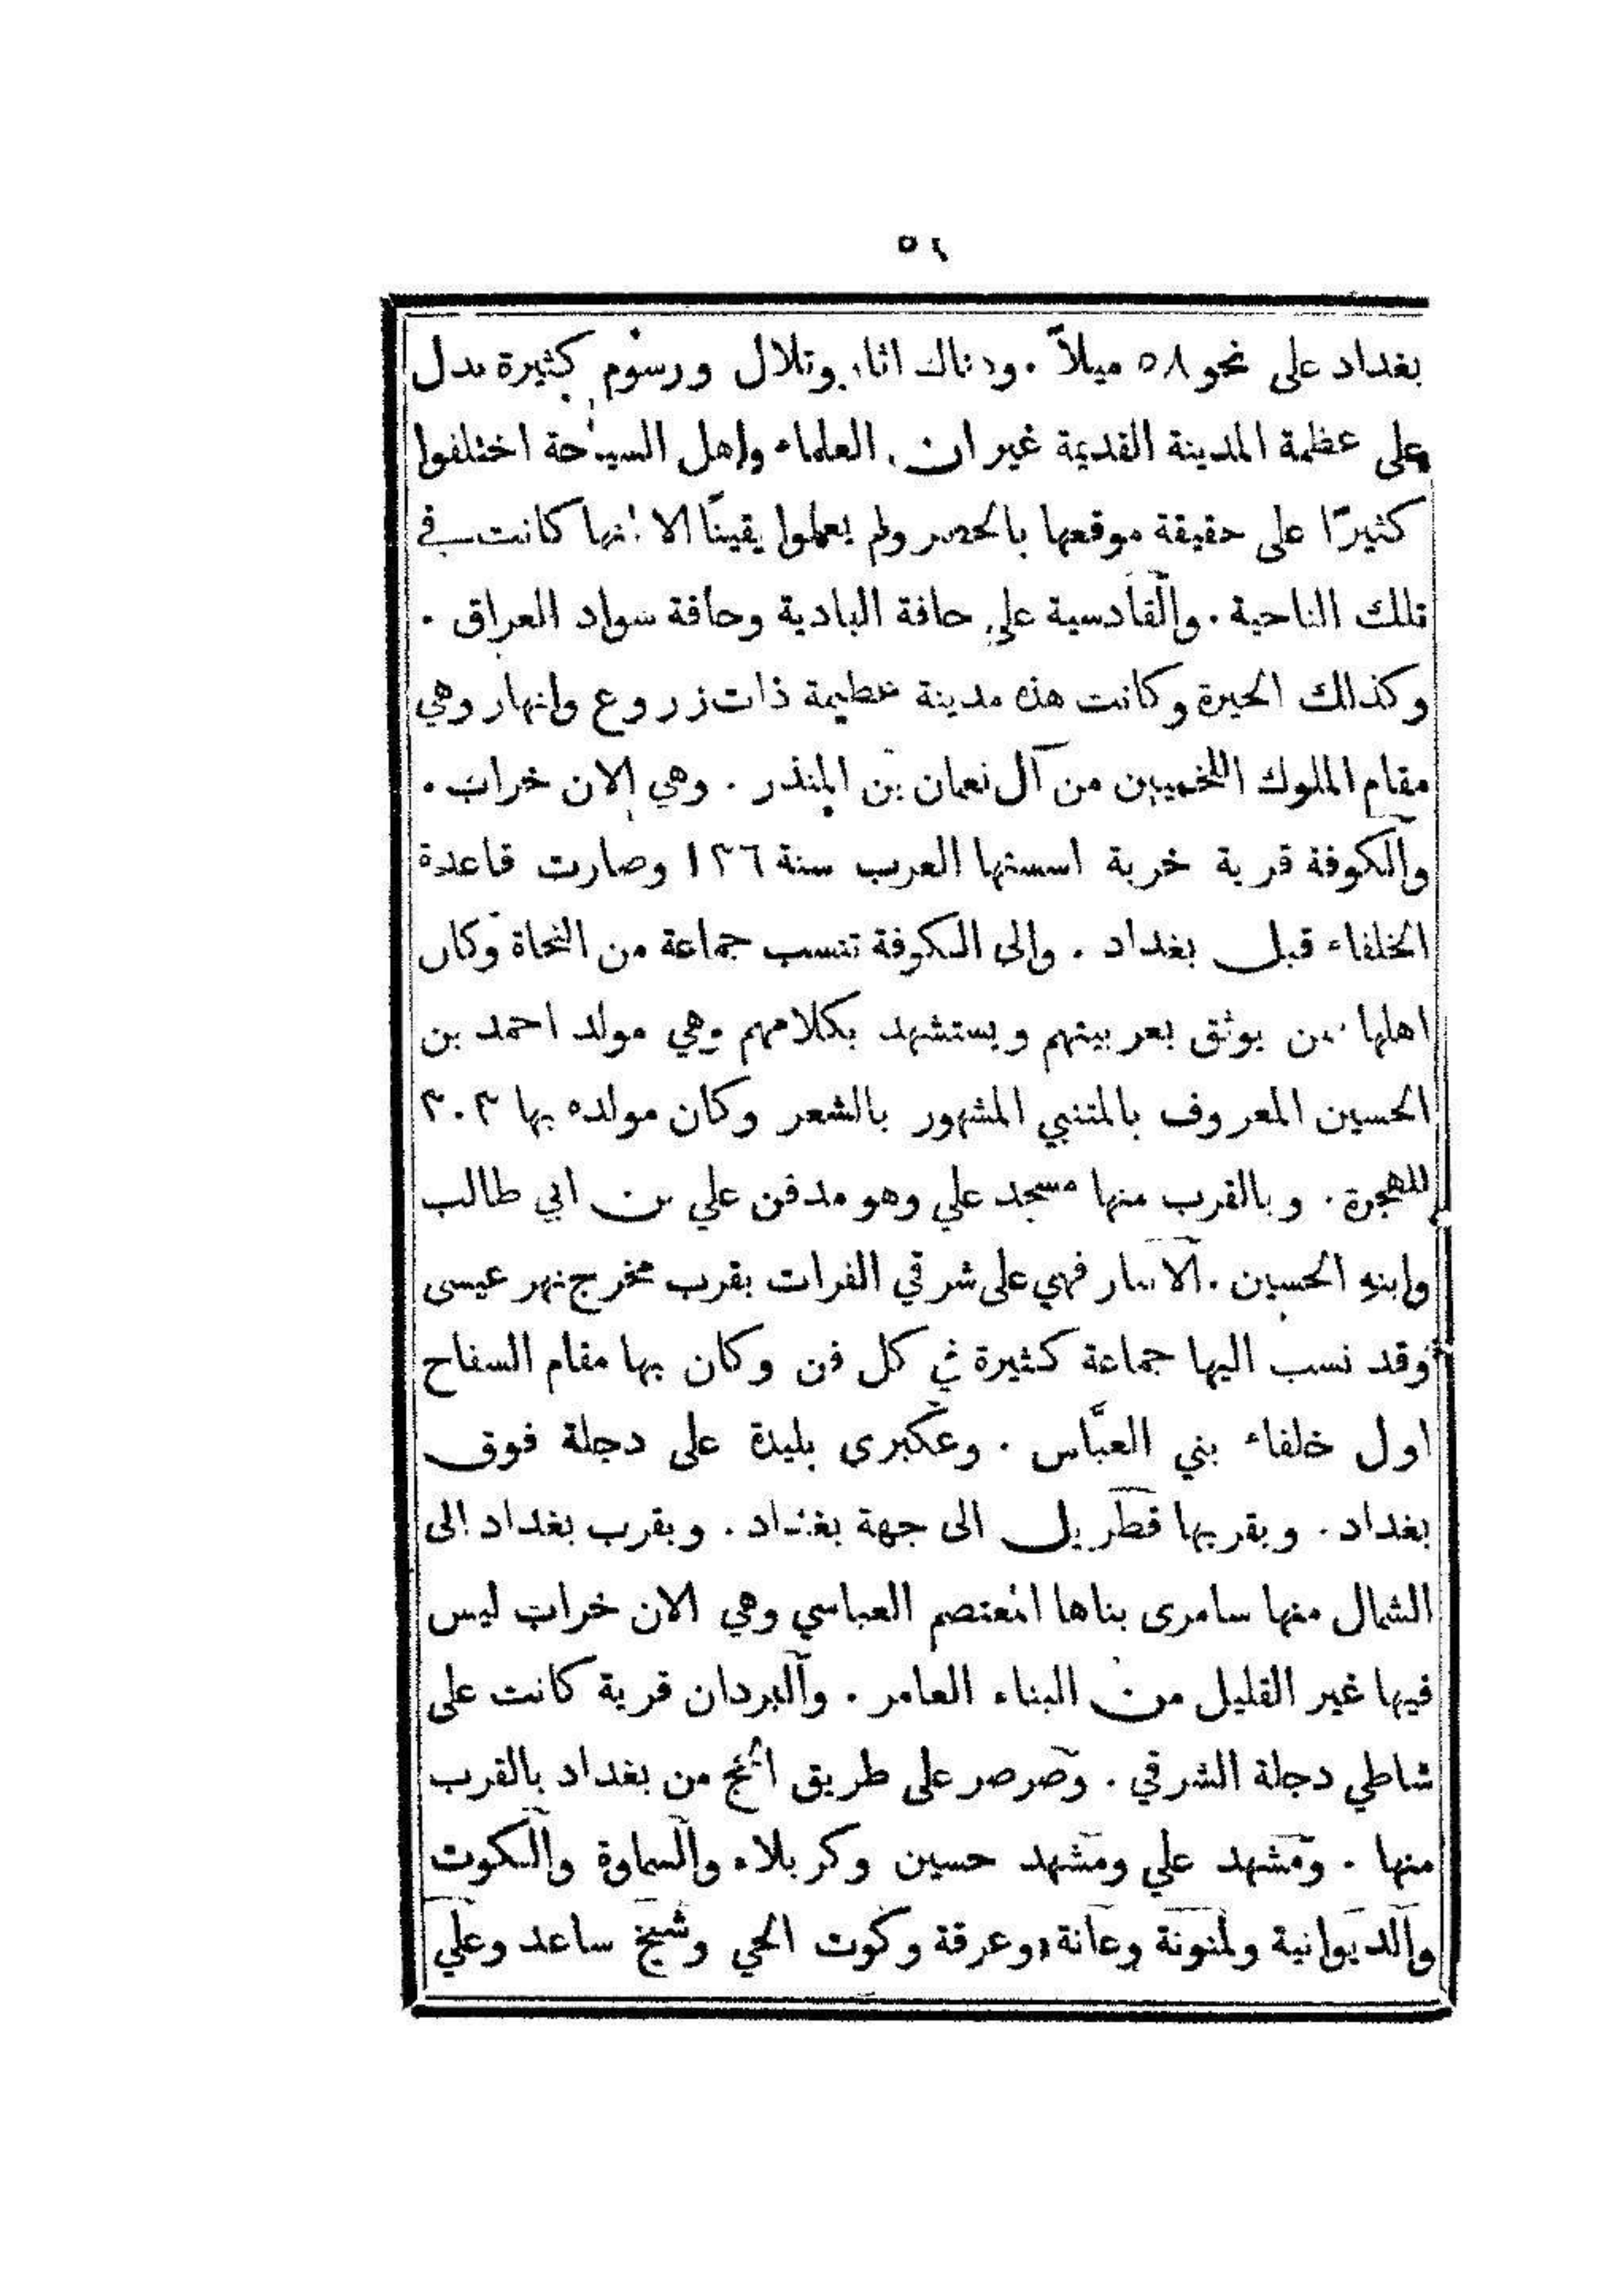 بغداد على نحو ٥٨ ميلاً . وهناك اثار وتلال ورسوم كثيرة تدل
على عظمة المدينة القديمة غير ان العلماء واهل السياحة اختلفوا
كثيرًا على حقيقة موقعها بالحصر ولم يعملوا يقينًا الا انها كانت في
تلك الناحية . والقادسية على حافة البادية وحافة سواد العراق .
وكذلك الحيرة وكانت هذه مدينة عظيمة ذات زروع وانهار وهي
مقام الملوك اللخميين من آل نعمان بن المنذر . وهي الان خراب .
والكوفة قرية خربة اسستها العرب سنة ١٣٦ وصارت قاعدة
الخلفاء قبل بغداد . والى الكوفة تنسب جماعة من النحاة وكان
اهلها ممن يوثق بعربيتهم ويستشهد بكلامهم وهي مولد احمد بن
الحسين المعروف بالمتنبي المشهور بالشعر وكان مولده بها ٣٠٣
للهجرة . وبالقرب منها مسجد علي وهو مدفن علي بن ابي طالب
وابنه الحسين . الانبار فهي على شرقي الفرات بقرب مخرج نهر عيسى
وقد نسب اليها جماعة كثيرة في كل فن وكان بها مقام السفاح
اول خلفاء بني العبَّاس . وعكبرى بليدة على دجلة فوق
بغداد . وبقربها قطربل الى جهة بغداد . وبقرب بغداد الى
الشمال منها سامرى بناها المعتصم العباسي وهي الان خراب ليس
فيها غير القليل من البناء العامر . والبردان قرية كانت على
شاطي دجلة الشرقي . وصرصر على طريق الحج من بغداد بالقرب
منها . ومشهد علي ومشهد حسين وكربلاء والسماوة والكوت
والديوانية ولمنونة وعانة وعرقة وكوت الحي وشيخ ساعد وعلي